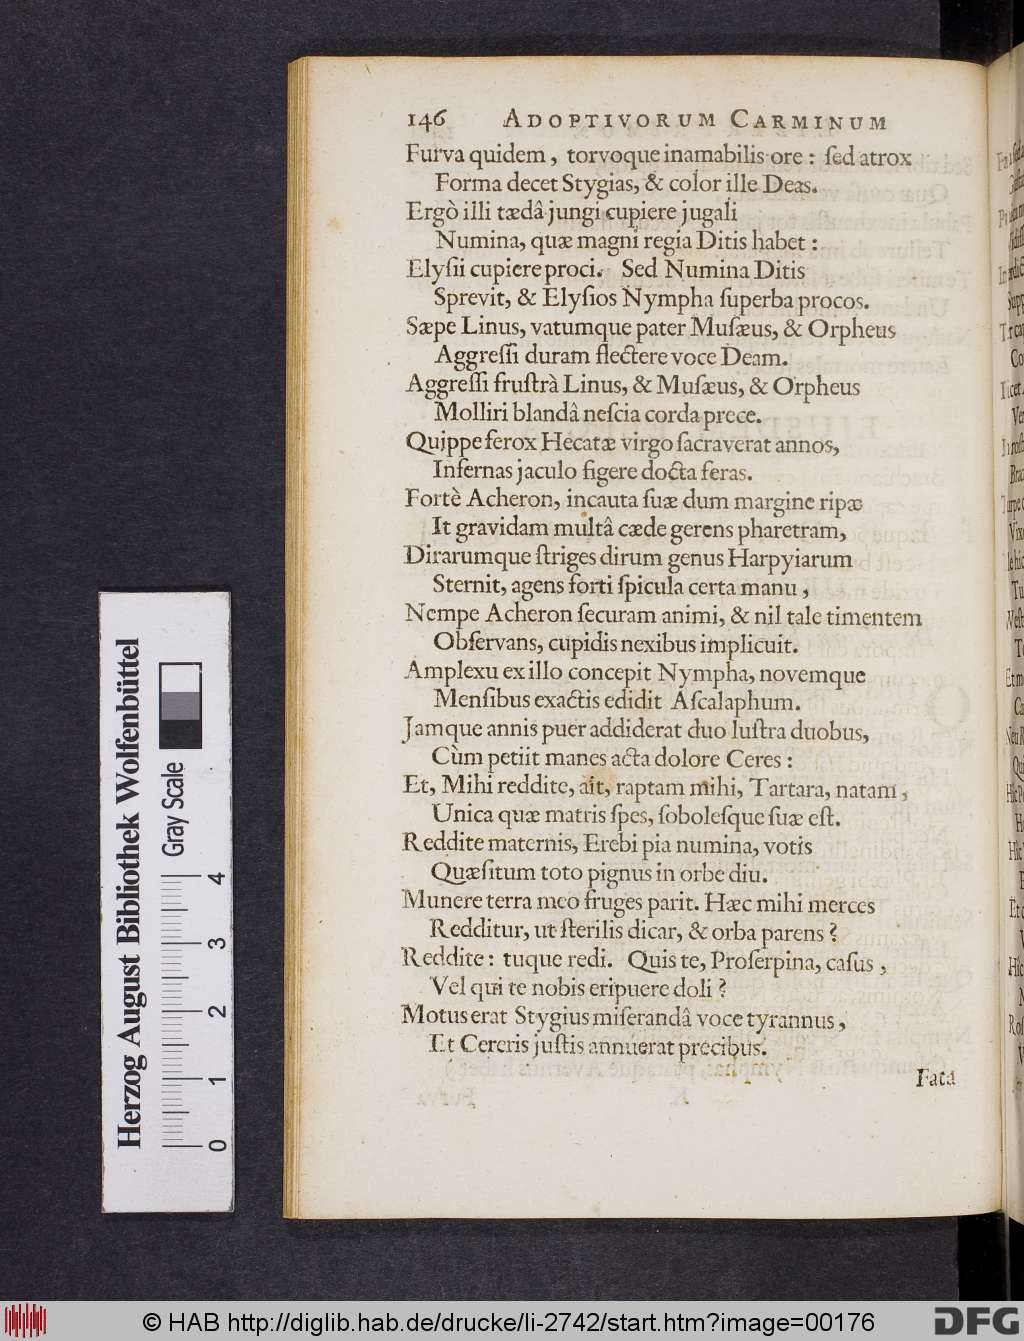 146 ADOPTIVORUM CARMINUM
Furva quidem, torvoque inamabilis ore : ſed atrox
Forma decet Stygias, & color ille Deas.
Ergò illi tædâ jungi cupiere jugali
Numina, quæ magni regia Ditis habet :
Elyſii cupiere proci. Sed Numina Ditis
Sprevit, & Elyſios Nympha ſuperba procos.
Sæpe Linus, vatumque pater Muſæus, & Orpheus
Aggreſſi duram flectere voce Deam.
Aggreſſi fruſtrà Linus, & Muſæus, & Orpheus
Molliri blandâ neſcia corda prece.
Quippe ferox Hecatæ virgo ſacraverat annos,
Infernas jaculo figere docta feras.
Fortè Acheron, incauta ſuæ dum margine ripæ
It gravidam multâ cæde gerens pharetram,
Dirarumque ſtriges dirum genus Harpyiarum
Sternit, agens forti ſpicula certa manu ,
Nempe Acheron ſecuram animi, & nil tale timentem
Obſervans, cupidis nexibus implicuit.
Amplexu ex illo concepit Nympha, novemque
Menſibus exactis edidit Aſcalaphum.
Jamque annis puer addiderat duo luſtra duobus,
Cùm petiit manes acta dolore Ceres :
Et, Mihi reddite, ait, raptam mihi, Tartara, natam ,
Unica quæ matris ſpes, ſoboleſque ſuæ eſt.
Reddite maternis, Erebi pia numina, votis
Quæſitum toto pignus in orbe diu.
Munere terra meo fruges parit. Hæc mihi merces
Redditur, ut ſterilis dicar, & orba parens ?
Reddite : tuque redi. Quis te, Proſerpina, caſus ,
Vel qui te nobis eripuere doli ?
Motus erat Stygius miſerandâ voce tyrannus ,
Et Cereris juſtis annuerat precibus.
Fata
Herzog August Bibliothek Wolfenbüttel
Gray Scale
0 1 2 3 4
© HAB http://diglib.hab.de/drucke/li-2742/start.htm?image=00176
DFG